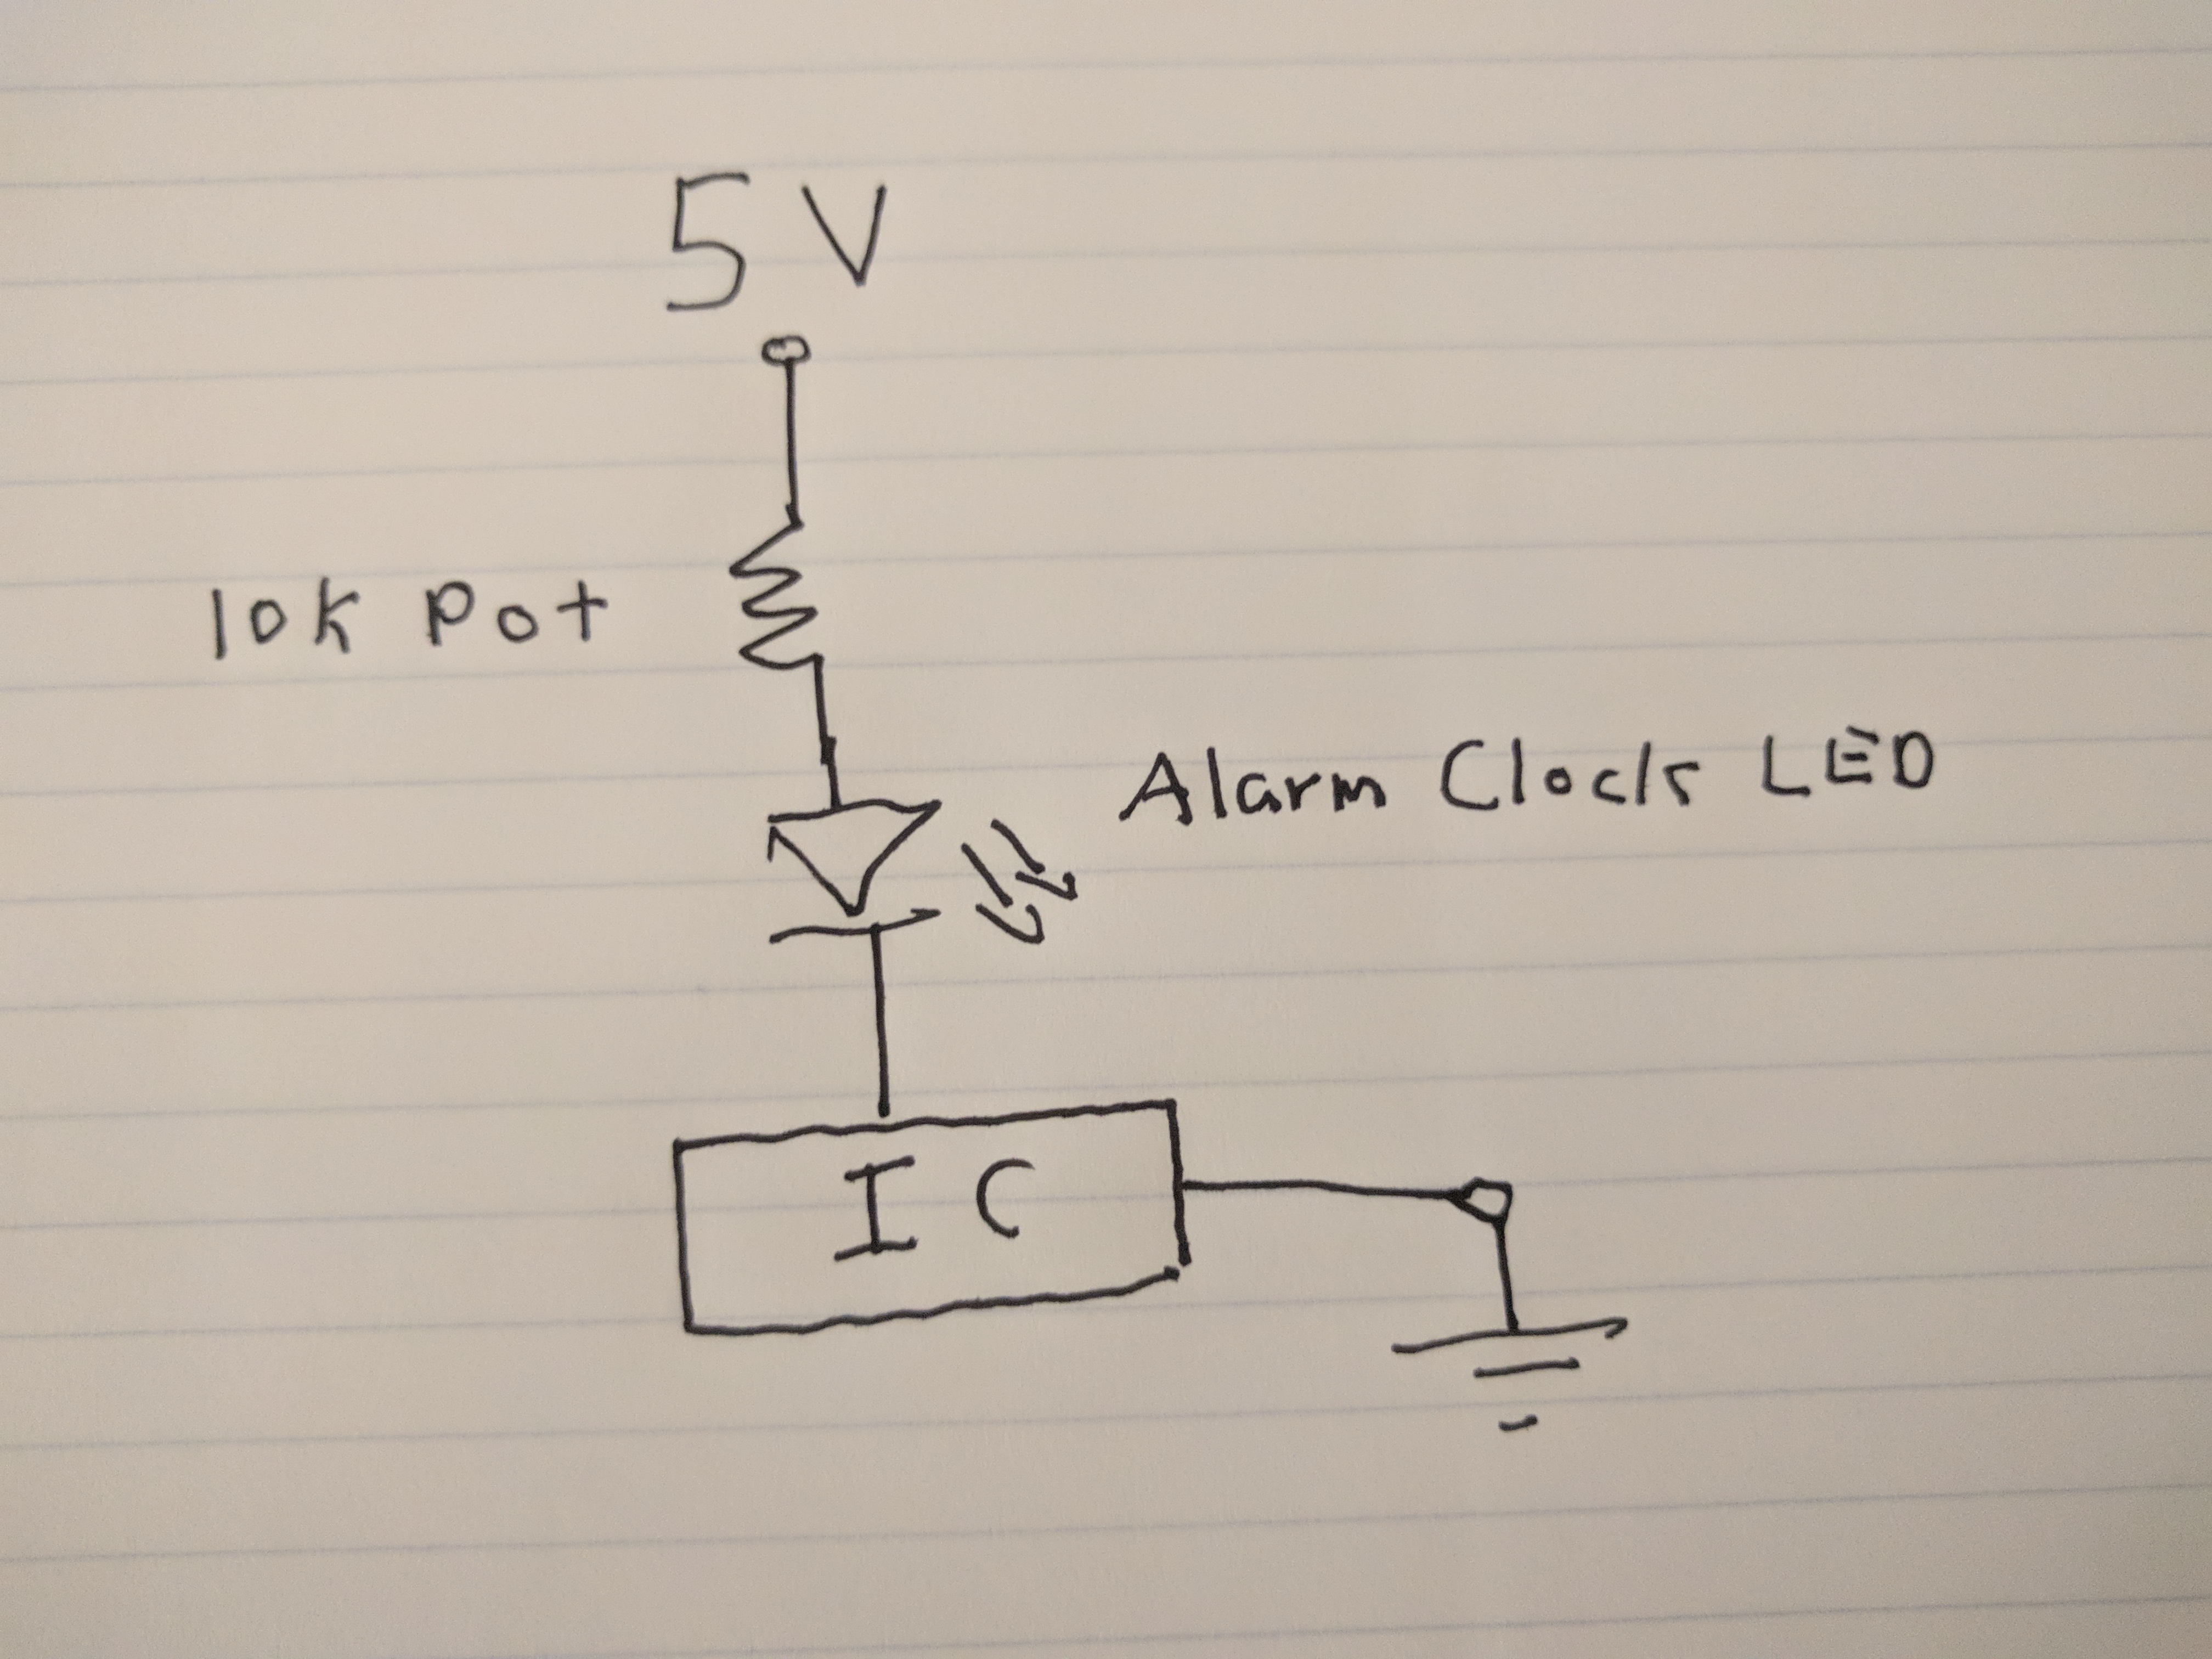 5V
10K Pot
Alarm Clock LED
IC